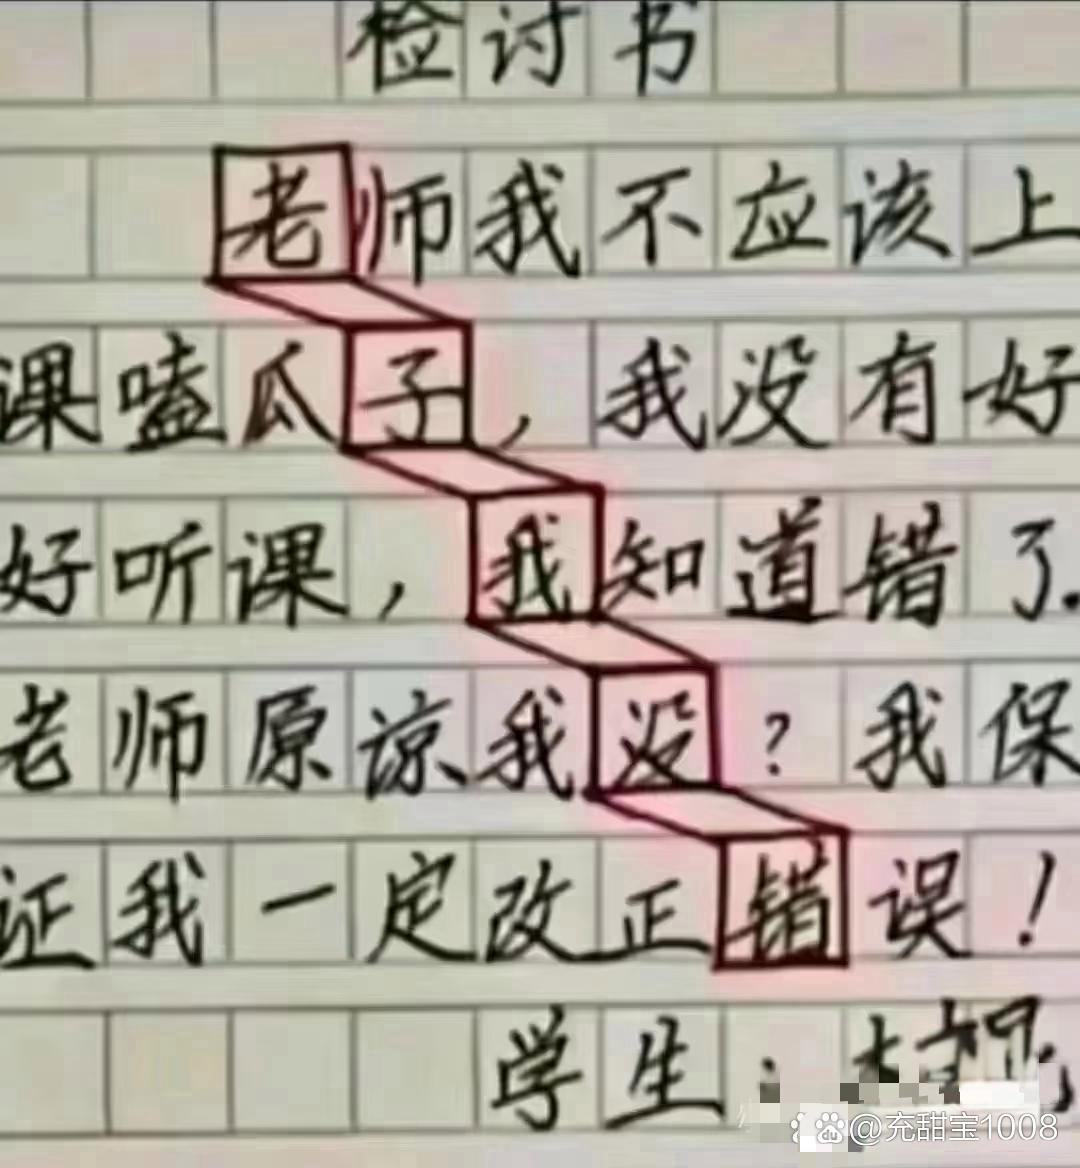 检讨书
老师我不应该上
课嗑瓜子，我没有好
好听课，我知道错了.
老师原谅我没？我保
证我一定改正错误！
学生：
du @充甜宝1008